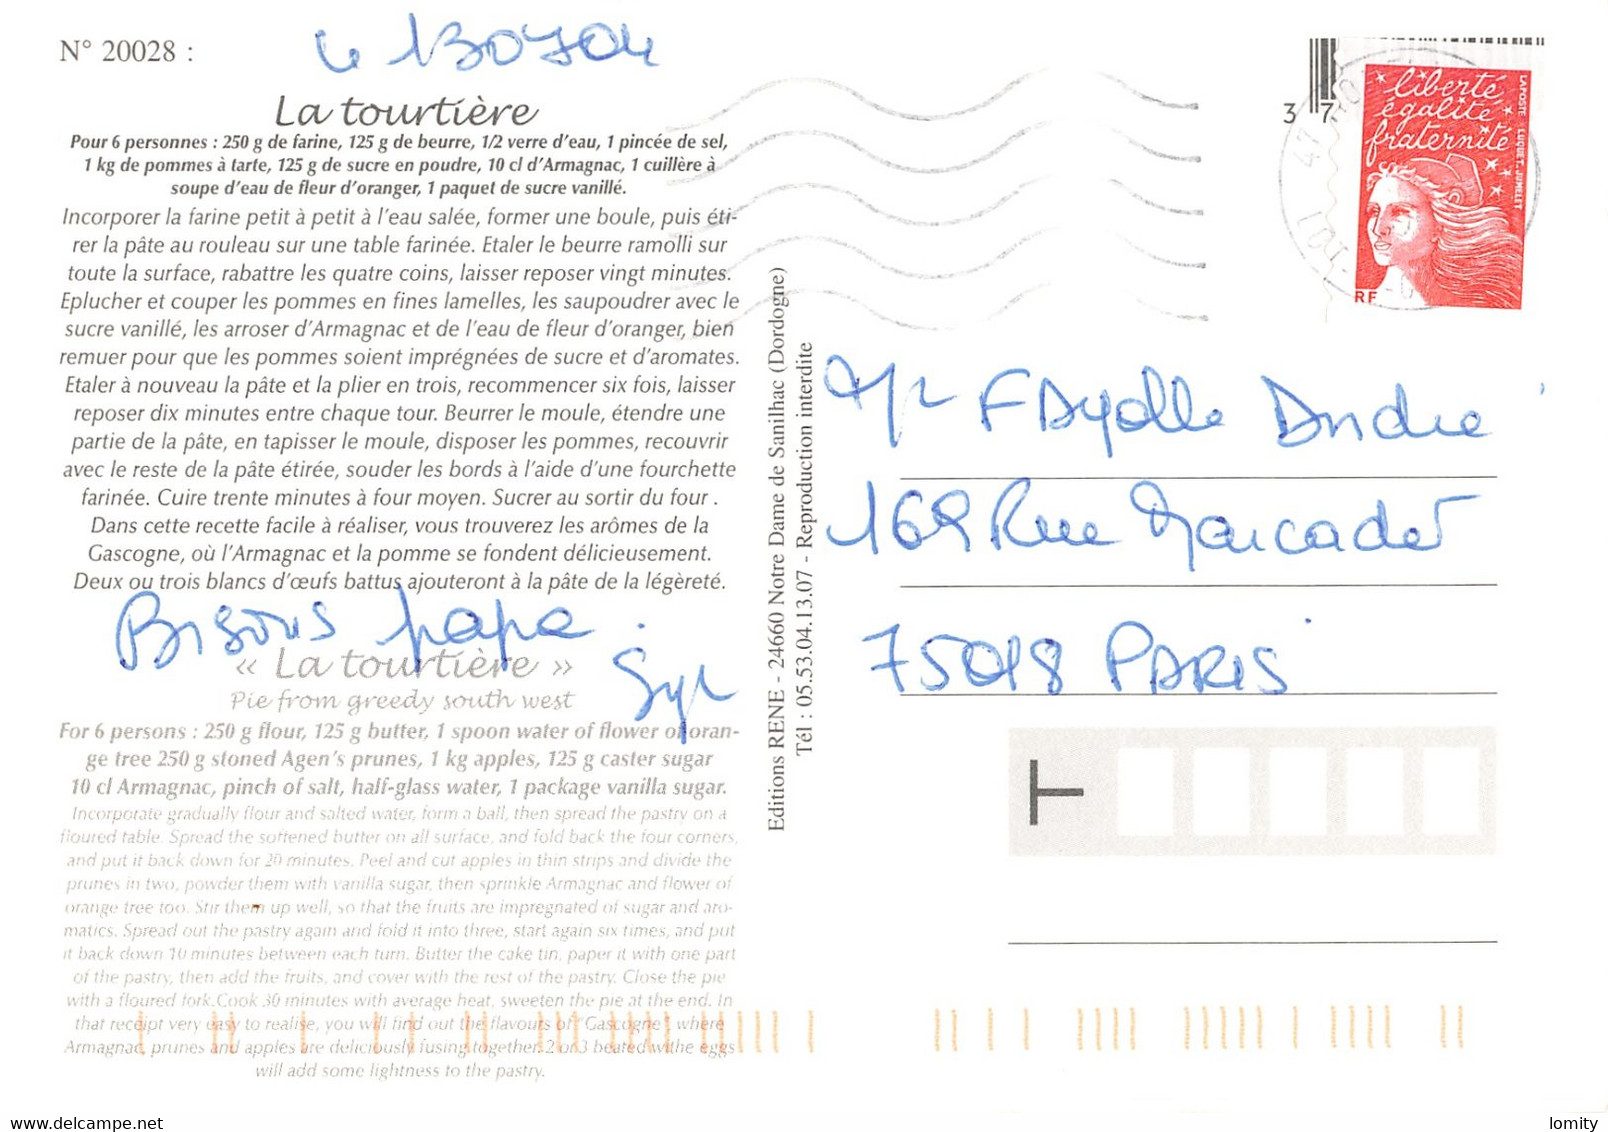 N° 20028 :
Le 130704
La tourtière
Pour 6 personnes : 250 g de farine, 125 g de beurre, 1/2 verre d'eau, 1 pincée de sel,
1 kg de pommes à tarte, 125 g de sucre en poudre, 10 cl d'Armagnac, 1 cuillère à
soupe d'eau de fleur d'oranger, 1 paquet de sucre vanillé.
Incorporer la farine petit à petit à l'eau salée, former une boule, puis éti-
rer la pâte au rouleau sur une table farinée. Etaler le beurre ramolli sur
toute la surface, rabattre les quatre coins, laisser reposer vingt minutes.
Eplucher et couper les pommes en fines lamelles, les saupoudrer avec le
sucre vanillé, les arroser d'Armagnac et de l'eau de fleur d'oranger, bien
remuer pour que les pommes soient imprégnées de sucre et d'aromates.
Etaler à nouveau la pâte et la plier en trois, recommencer six fois, laisser
reposer dix minutes entre chaque tour. Beurrer le moule, étendre une
partie de la pâte, en tapisser le moule, disposer les pommes, recouvrir
avec le reste de la pâte étirée, souder les bords à l'aide d'une fourchette
farinée. Cuire trente minutes à four moyen. Sucrer au sortir du four .
Dans cette recette facile à réaliser, vous trouverez les arômes de la
Gascogne, où l'Armagnac et la pomme se fondent délicieusement.
Deux ou trois blancs d'œufs battus ajouteront à la pâte de la légèreté.
Bisous papa.
« La tourtière »
Pie from greedy south west
For 6 persons : 250 g flour, 125 g butter, 1 spoon water of flower of oran-
ge tree 250 g stoned Agen's prunes, 1 kg apples, 125 g caster sugar
10 cl Armagnac, pinch of salt, half-glass water, 1 package vanilla sugar.
Incorporate gradually flour and salted water, form a ball, then spread the pastry on a
floured table. Spread the softened butter on all surface, and fold back the four corners,
and put it back down for 20 minutes. Peel and cut apples in thin strips and divide the
prunes in two, powder them with vanilla sugar, then sprinkle Armagnac and flower of
orange tree too. Stir them up well, so that the fruits are impregnated of sugar and aro-
matics. Spread out the pastry again and fold it into three, start again six times, and put
it back down 10 minutes between each turn. Butter the cake tin, paper it with one part
of the pastry, then add the fruits, and cover with the rest of the pastry. Close the pie
with a floured fork.Cook 30 minutes with average heat, sweeten the pie at the end. In
that receipt very easy to realise, you will find out the flavours of "Gascogne", where
Armagnac, prunes and apples are deliciously fusing together. 2 or 3 beated withe eggs
will add some lightness to the pastry.
Editions RENE - 24660 Notre Dame de Sanilhac (Dordogne)
Tél : 05.53.04.13.07 - Reproduction interdite
37
liberté
égalité
fraternité
LA POSTE LUQUET. JUMELET
RF
Mr FAyolle Andre
169 Rue Marcadet
75018 PARIS
T
delcampe.net
lomity